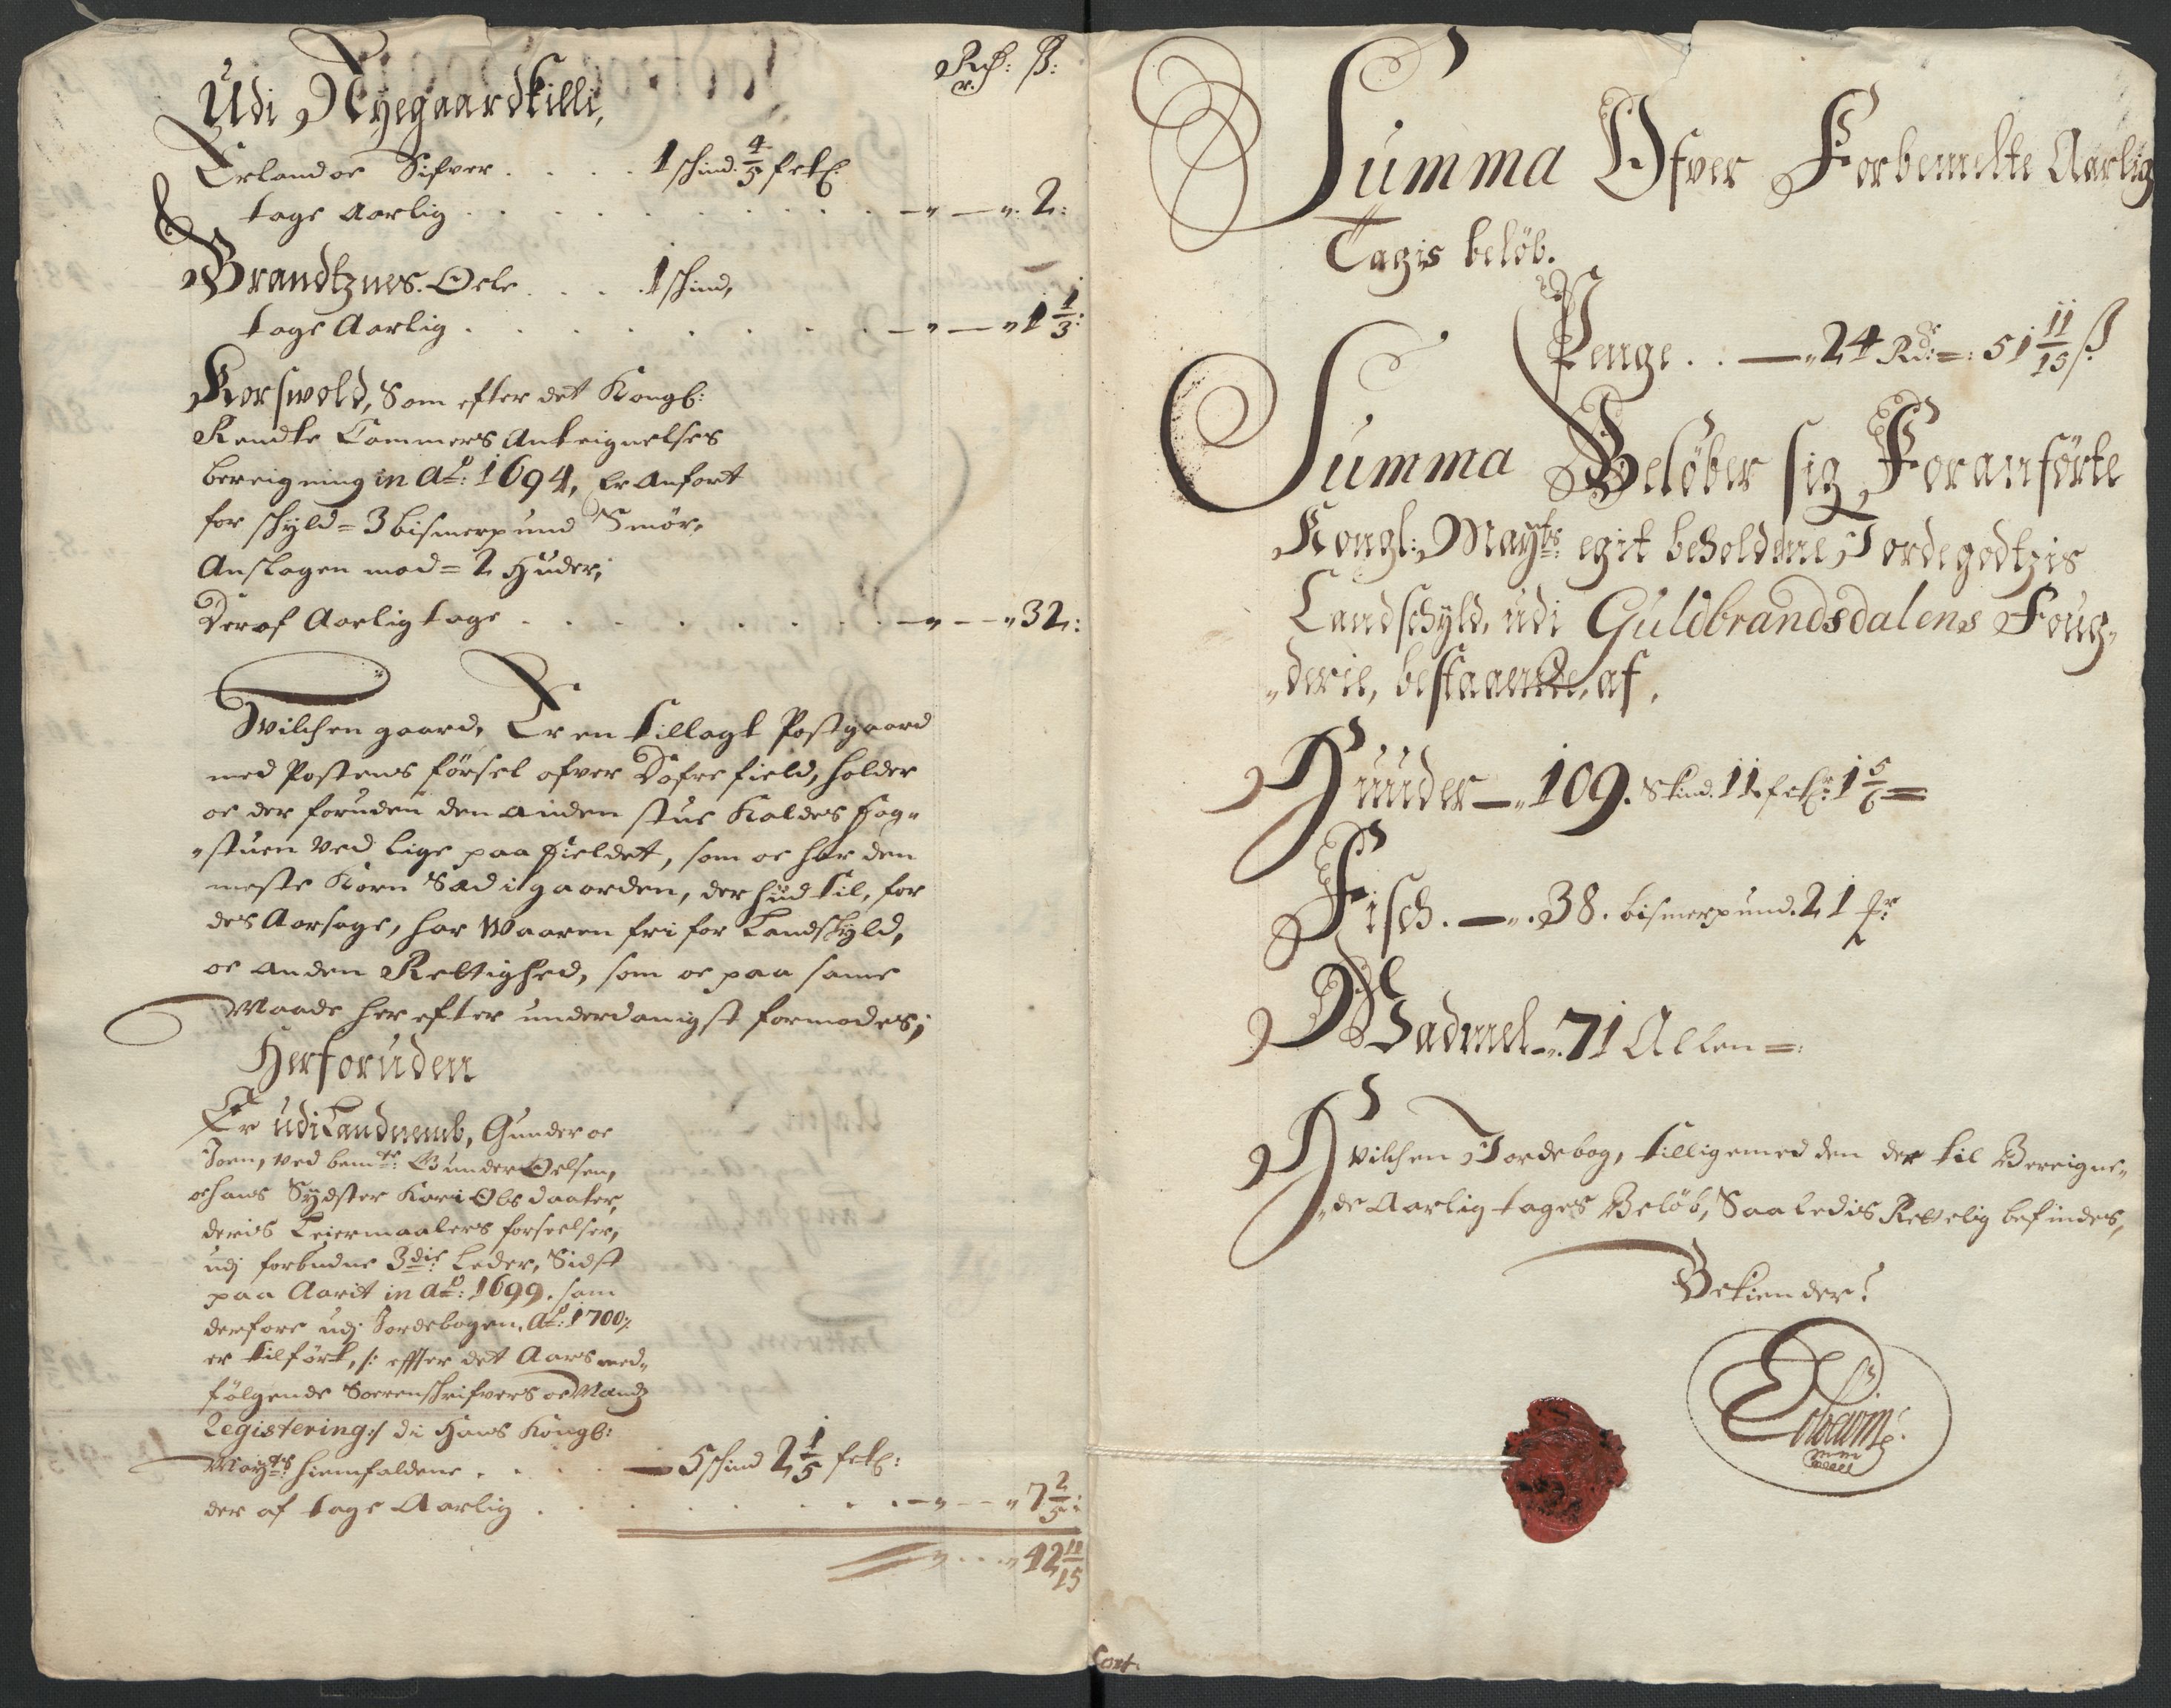 Rdr: ß:
Udi Nyegaardkilli,
Erland oc Sifver . . . . 1 schind. 4/5 sckl:
tage Aarlig . . . . . . . . . — " — " 2:
Brandtznes. Oele . . . . 1 schind,
tage Aarlig . . . . . . . . — " — " 1 1/3:
Korswold, Som efter det Kongl:
Rendte Cammers Anteignelses
bereigning in Ao: 1694, Er Anfört
for schyld = 3 bismerpund Smör,
Anslagen mod = 2 Huder;
Deraf Aarlig tage . . . . . . . . — " — " 32:
Hvilchen gaard, Er en tillagt Postgaard
med Postens försel ofver Dofre field, holder
oc der foruden den anden stue Kaldes Fog-
"stuen ved lige paa fieldet, som oc har den
meste Korn Sæd i gaarden, der hid til, for
des Aarsage, har Waaren fri for Landskyld,
oc anden Rettighed, som oc paa same
Maade her efter underdanigst formodes;
Herforuden
Er udi Landnemb, Gunder oc
Joen, ved bemte: Gunder Oelsen,
oc hans Sydster Kari Olsdaater,
deris Leiermaalers forseelser,
udj forbudne 3die: Leder, Sidst
paa Aarit in Ao: 1699. som
derfore udj Jordebogen, Ao: 1700;
er tilfört, /: effter det Aars med-
fölgende Sorrenschrifvers oc Mandz
Registering :/ di Hans Kongl:
Mayts: hiemfaldene . . . — 5 schind 2 1/5 sckl:
der af tage Aarlig . . . . . . . — " — " 7 2/5:
" . . . " 42 11/15
Summa Ofver Forbemelte Aarlig
Tagis belöb.
Penge . . — " 24 Rdr: = : 51 11/15 ß
Summa Belöber sig Foranförte
Kongl: Mayts: egit beholdene Jordegodtzis
Landschyld, udi Guldbrandsdalens Foug-
"derie, bestaaende, af,
Huuder — " 109. Skind. 11. sckr: 1 5/6 =
Fisch. — " . 38. bismerpund. 21 pr
Wadmel — " . 71 Allen = :
Hvilchen Jordebog, tilligemed den der til Bereigne-
"de Aarlig tages Belöb, Saaledis Rettelig befindes,
Bekiender?
Cont.